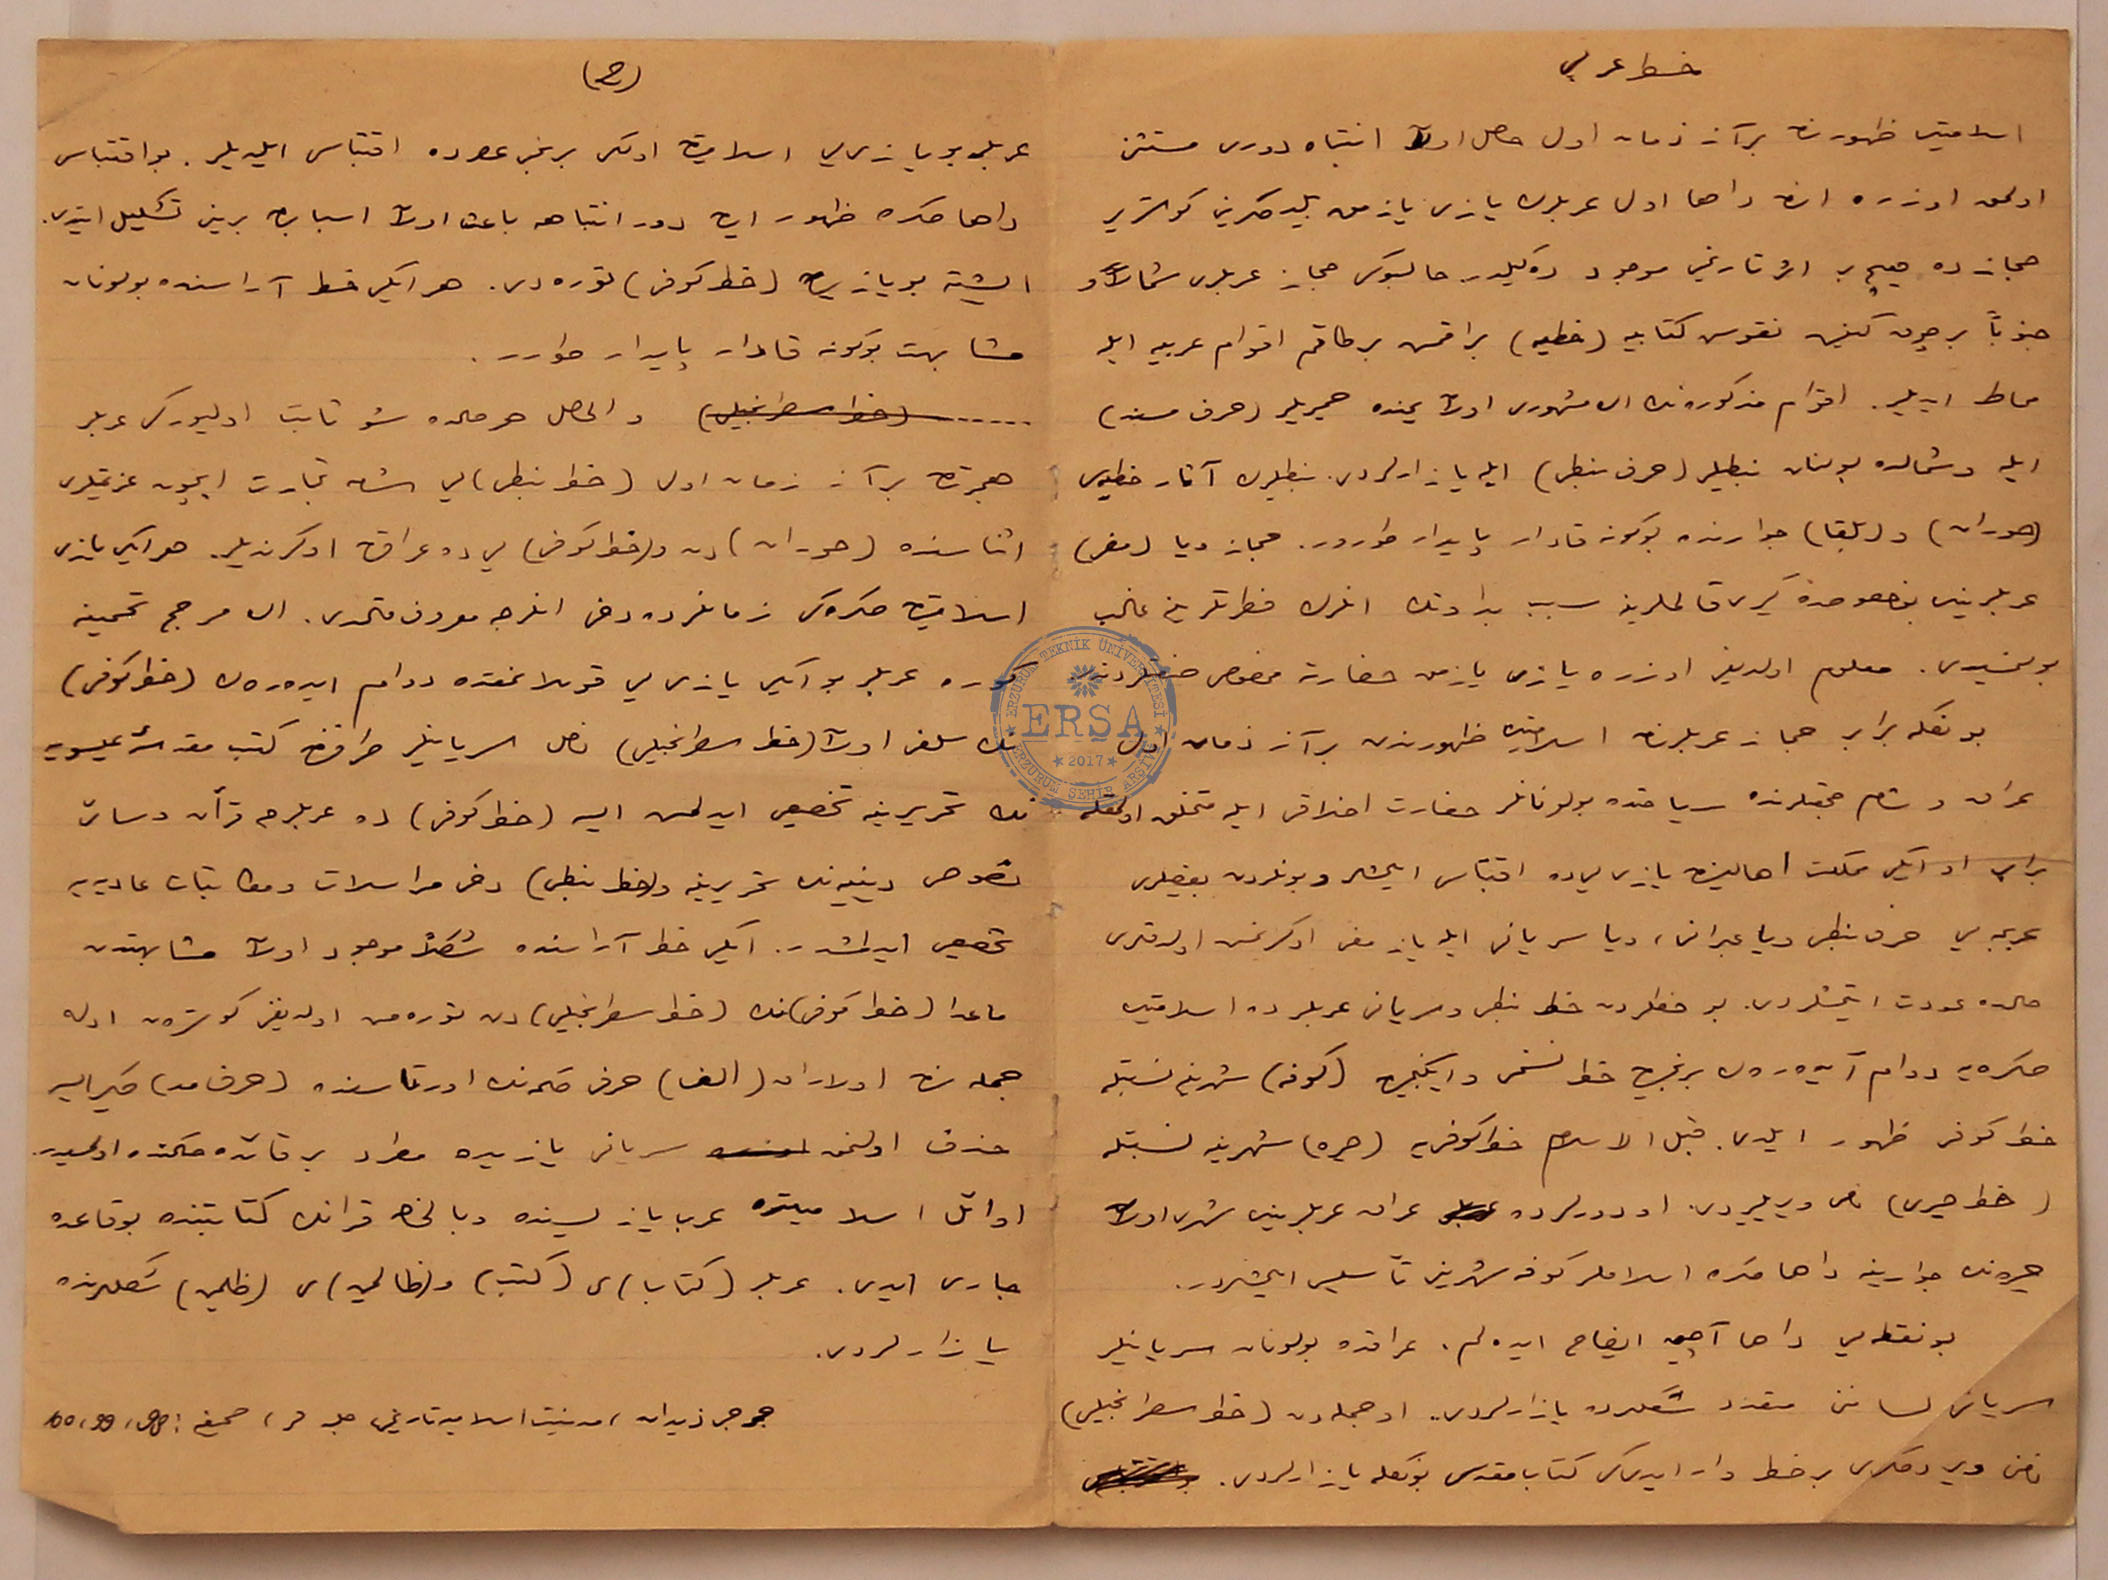 خط عربی
اسلامیتك ظهورندن بر آز زمان اول حاصل اولان انتباه دوری مستثنی
اولمق اوزره اندن داها اول عربلرك یازی یازمق بیلدكلرینی كوسترر
حجازده هیچ بر اثر تاریخی موجود دكیلدر. حالبوكه حجاز عربلری شمالاً و
جنوباً بر چوق نقوش كتابیه (خطیه) براقمش بر طاقم اقوام عربیه ایله
محاط ایدیلر. اقوام مذكوره‌نك اك مشهوری اولان یمنده حمیریلر (حرف مسند)
ایله و شمالده بولنان نبطیلر (حرف نبطی) ایله یازارلردی. نبطیلرك آثار خطیه‌سی
(حوران) و (بلقا) جوارنده بوكونه قادار پایدار طورور. حجاز ویا (مضر)
عربلرینك بو خصوصده كیری قالملرینه سبب بداوتك انلرك فطرتلرینه غالب
بولنمسیدی. معلوم اولدیغی اوزره یازی یازمق حضارته مخصوص صنعتلردندر.
بونكله برابر حجاز عربلرندن اسلامیتك ظهورندن بر آز زمان اول
عراق و شام جهتلرنده سیاحتده بولونانلر حضارت اخلاقی ایله متخلق اولمقله
برابر او ایكی مملكت اهالیسندن یازی‌یی‌ده اقتباس ایتمشلر و بونلردن بعضیلری
عربجه‌یی حرف نبطی ویا عبرانی، ویا سریانی ایله یازمغی اوكرنمش اولدقلری
حالده عودت ایتمشلردی. بو خطلردن خط نبطی و سریانی عربلرده اسلامیتدن
صكره‌یه دوام ایده‌رك برنجیدن خط نسخی و ایكنجیدن (كوفه) شهرینه نسبتله
خط كوفی ظهور ایلدی. قبل الاسلام خط كوفی‌یه (حیره) شهرینه نسبتله
(خط حیری) نامی ویریلیردی. او دورلرده عراق عربلرینك شهری اولان
حیره‌نك جوارینه داها صكره اسلاملر كوفه شهرینی تأسیس ایتمشلردر.
بو نقطه‌یی داها آچیق ایضاح ایده‌لم. عراقده بولونان سریانیلر
سریانی لساننی متعدد شكللرده یازارلردی. او جمله‌دن (خط سطرانجیلی)
نامنی ویردكلری بر خط وار ایدی كه كتاب مقدسی بونكله یازارلردی.
(۲)
عربلر بو یازی‌یی اسلامیتدن اولكی برنجی عصرده اقتباس ایلدیلر. بو اقتباس
داها صكره ظهور ایدن دور انتباهه باعث اولان اسبابدن برینی تشكیل ایتدی.
ایشته بو یازیدن (خط كوفی) توره‌دی. هر ایكی خط آراسنده بولونان
مشابهت بوكونه قادار پایدار طورر.
...... (خط سطرانجیلی) والحاصل هر حالده شو ثابت اولیور كه عربلر
هجرتدن بر آز زمان اول (خط نبطی)‌یی شامه تجارت ایچون عزیمتلری
اثناسنده (حوران)دن و (خط كوفی)‌یی ده عراقدن اوكرندیلر. هر ایكی یازی
اسلامیتدن صكره‌كی زمانلرده دخی انلرجه معروف قالدی. اك مرجح تخمینه
كوره عربلر بو ایكی یازی‌یی قوللانمقده دوام ایده‌رك (خط كوفی)
نك سلفی اولان (خط سطرانجیلی) ناصل سریانیلر طرفندن كتب مقدسۀ عیسویه
نك تحریرینه تخصیص ایدلمش ایسه (خط كوفی) ده عربلرجه قرآن و سائر
نصوص دینیه‌نك تحریرینه و (خط نبطی) دخی مراسلات و مكاتبات عادیه‌یه
تخصیص ایدلمشدر. ایكی خط آراسنده شكلاً موجود اولان مشابهتدن
ماعدا (خط كوفی)نك (خط سطرانجیلی)دن توره‌مش اولدیغنی كوسترن ادله
جمله‌سندن اولارق (الف) حرفی كلمه‌نك اورتاسنده (حرف مد) كلیر ایسه
حذف اولنمق سریانی یازیده مطرد بر قاعده حكمنده اولمسیدر.
اوائل اسلامیتده عرب یازیسنده و بالخاصه قرآنك كتابتنده بو قاعده
جاری ایدی. عربلر (كتاب)ی (كتب) و (ظالمین)ی (ظلمین) شكللرنده
یازارلردی.
جرجی زیدان، مدنیت اسلامیه تاریخی، جلد ۳، صحیفه: 98، 99، 100
ERZURUM TEKNİK ÜNİVERSİTESİ
ERSA
2017
ERZURUM ŞEHİR ARŞİVİ